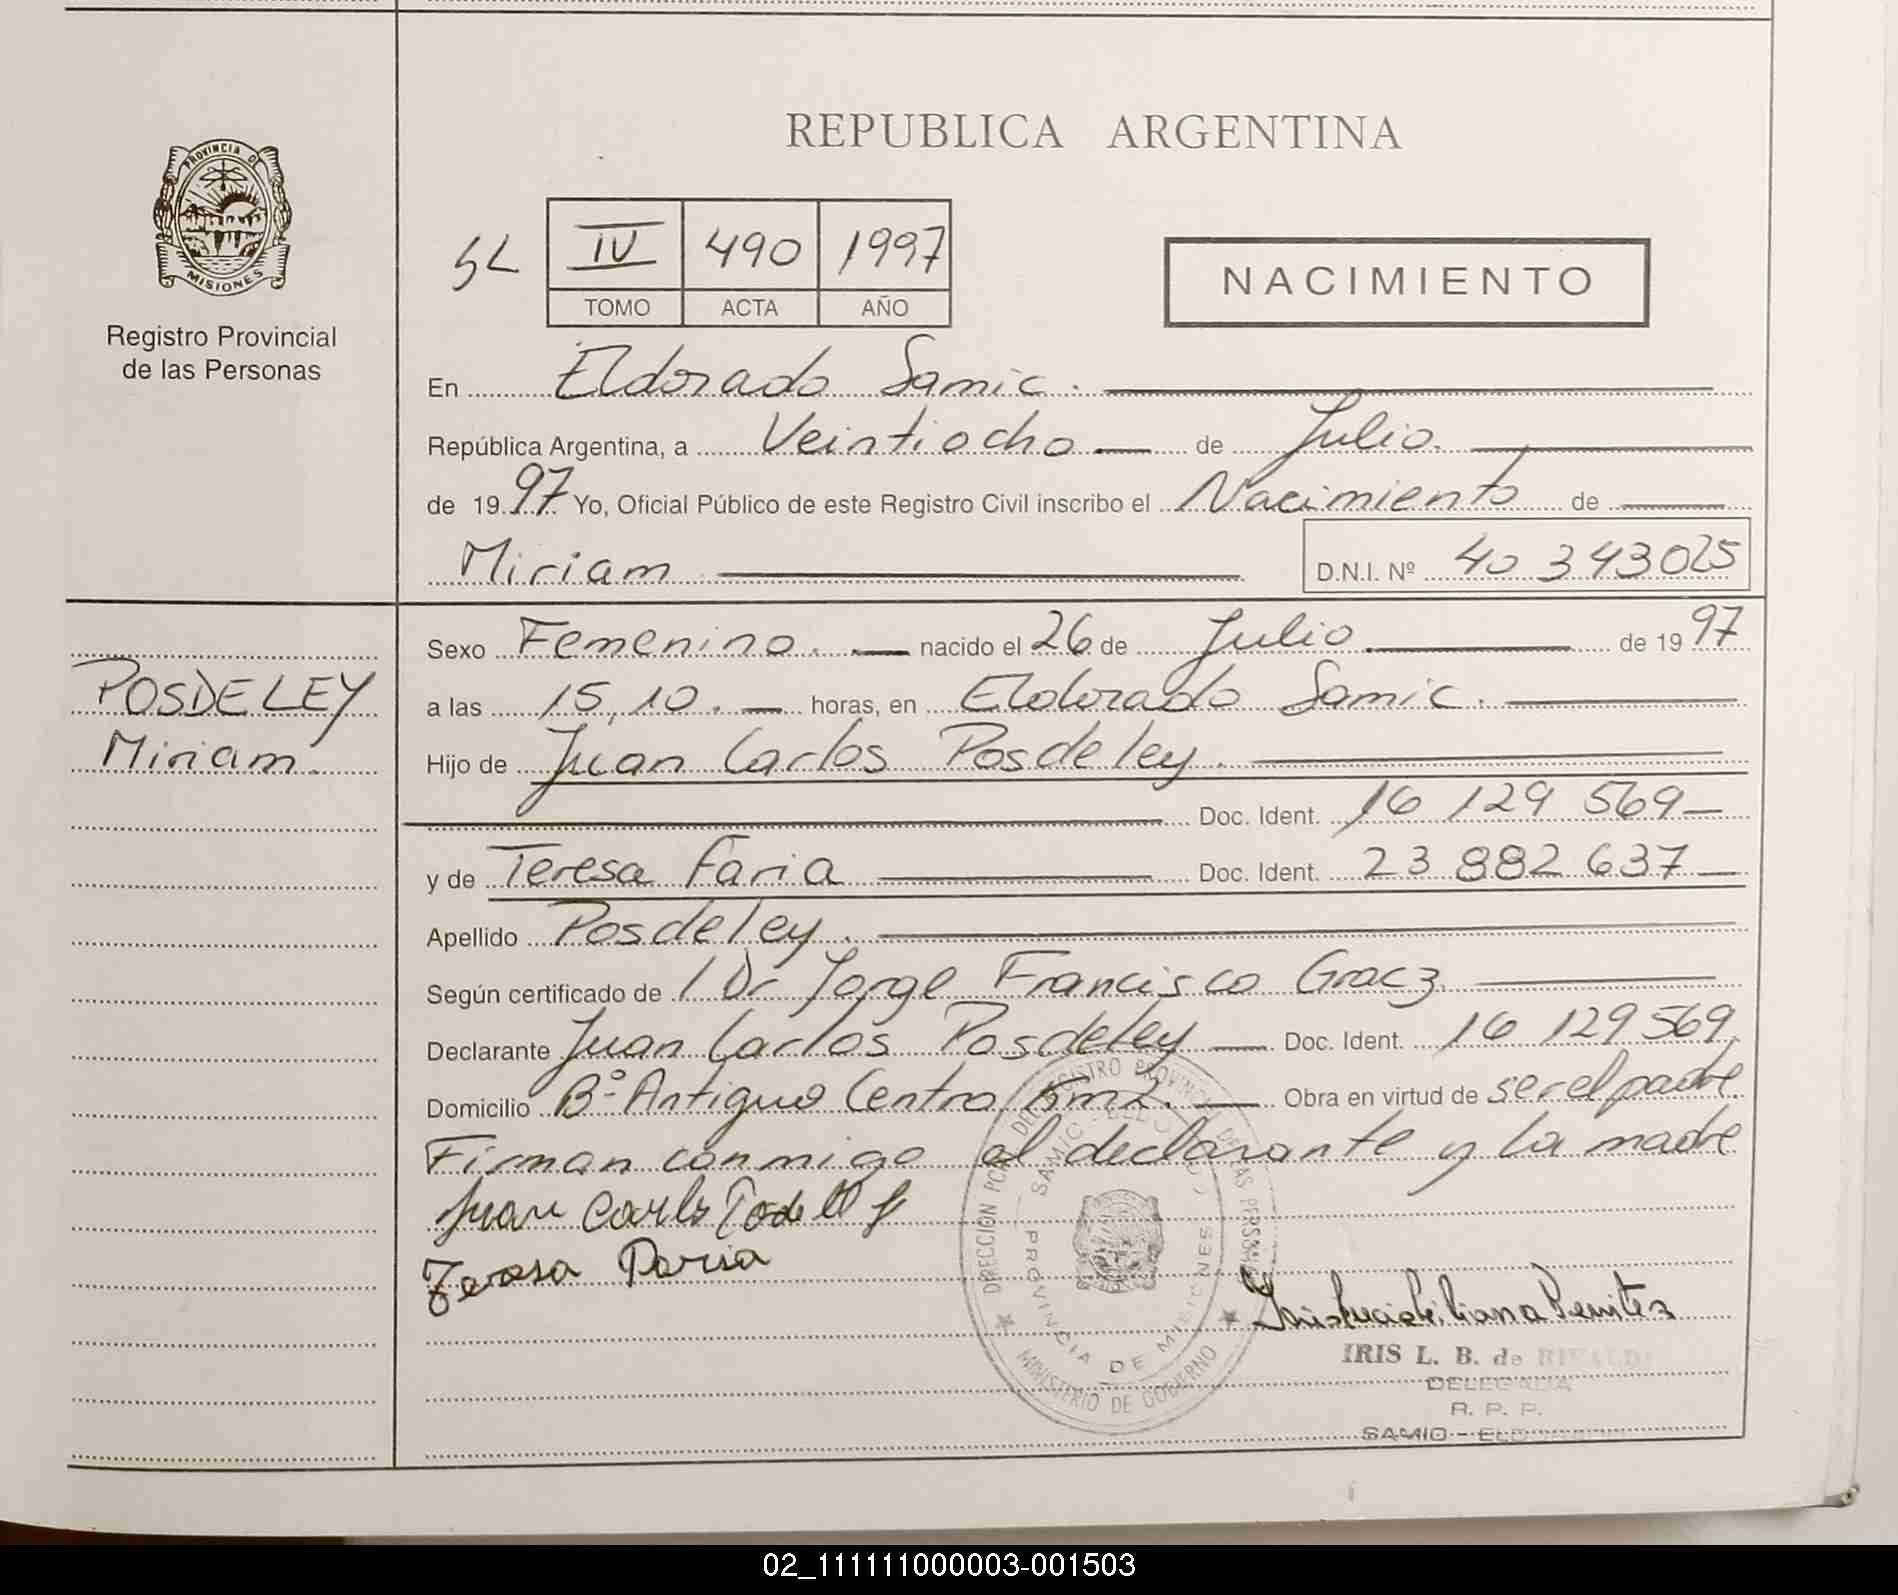 REPUBLICA ARGENTINA
PROVINCIA DE
MISIONES
Registro Provincial
de las Personas
IV 490 1997
TOMO ACTA AÑO
NACIMIENTO
En Eldorado Samic.
República Argentina, a Veintiocho de Julio.
de 1997 Yo, Oficial Público de este Registro Civil inscribo el Nacimiento de
Miriam D.N.I. Nº 40 343025
POSDELEY
Miriam.
Sexo Femenino. nacido el 26 de Julio de 1997
a las 15,10. horas, en Eldorado Samic.
Hijo de Juan Carlos Posdeley.
Doc. Ident. 16 129 569
y de Teresa Faria Doc. Ident. 23 882 637
Apellido Posdeley.
Según certificado de / Dr Jorge Francisco Gracz
Declarante Juan Carlos Posdeley Doc. Ident. 16 129 569
Domicilio Bº Antiguo Centro Km2. Obra en virtud de ser el padre.
Firman conmigo el declarante y la madre
Juan Carlos
Teresa Faria
DIRECCION DEL REGISTRO PROVINCIAL DE LAS PERSONAS
PROVINCIA DE MISIONES
MINISTERIO DE GOBIERNO
Benitez
IRIS L. B. de
DELEGADA
R. P. P.
SAMIC - ELDORADO
02_111111000003-001503